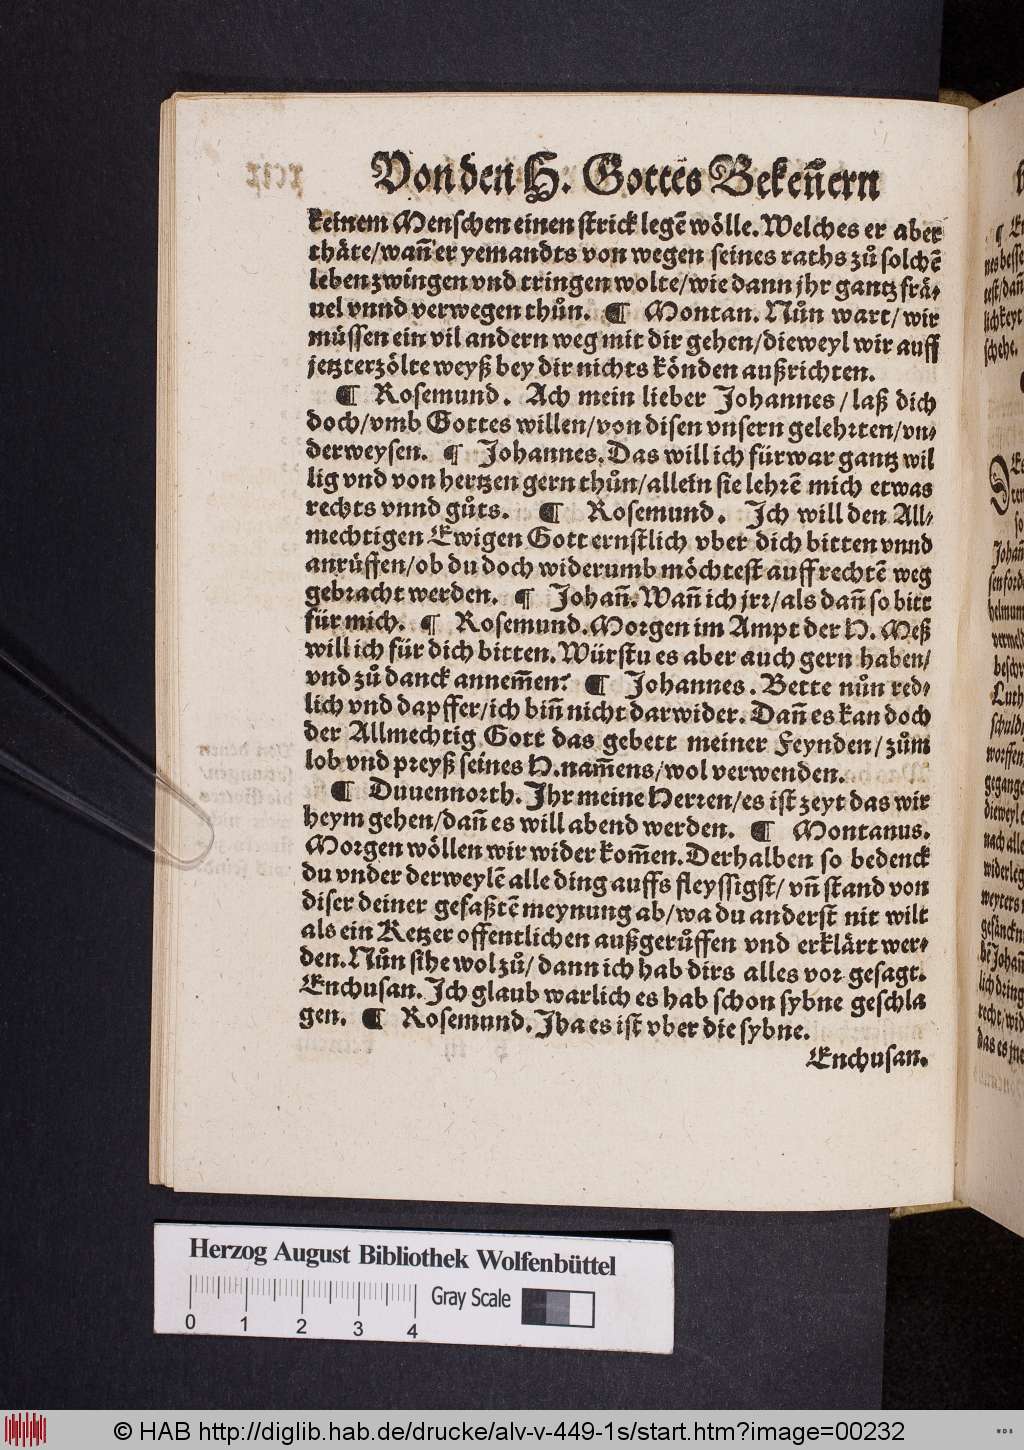 Von den H. Gottes Bekeñern
keinem Menschen einen strick legẽ wölle. Welches er aber
thäte/ wañ er yemandts von wegen seines raths zů solchẽ
leben zwingen vnd tringen wolte/ wie dann jhr gantz frä-
uel vnnd verwegen thůn. ¶ Montan. Nůn wart/ wir
müssen ein vil andern weg mit dir gehen/ dieweyl wir auff
jetzterzölte weyß bey dir nichts könden außrichten.
¶ Rosemund. Ach mein lieber Johannes/ laß dich
doch/ vmb Gottes willen/ von disen vnsern gelehrten/ vn-
derweysen. ¶ Johannes. Das will ich fürwar gantz wil
lig vnd von hertzen gern thůn/ allein sie lehrẽ mich etwas
rechts vnnd gůts. ¶ Rosemund. Ich will den All-
mechtigen Ewigen Gott ernstlich vber dich bitten vnnd
anrüffen/ ob du doch widerumb möchtest auff rechtẽ weg
gebracht werden. ¶ Johañ. Wañ ich jrr/ als dañ so bitt
für mich. ¶ Rosemund. Morgen im Ampt der H. Meß
will ich für dich bitten. Würstu es aber auch gern haben/
vnd zů danck annem̃en? ¶ Johannes. Bette nůn red-
lich vnd dapffer/ ich biñ nicht darwider. Dañ es kan doch
der Allmechtig Gott das gebett meiner Feynden/ zům
lob vnd preyß seines H. nam̃ens/ wol verwenden.
¶ Duuennorth. Ihr meine Herren/ es ist zeyt das wir
heym gehen/ dañ es will abend werden. ¶ Montanus.
Morgen wöllen wir wider kom̃en. Derhalben so bedenck
du vnder derweylẽ alle ding auffs fleyssigst/ vñ stand von
diser deiner gefaßtẽ meynung ab/ wa du anderst nit wilt
als ein Ketzer offentlichen außgerůffen vnd erklärt wer-
den. Nůn sihe wol zů/ dann ich hab dirs alles vor gesagt.
Enchusan. Ich glaub warlich es hab schon sybne geschla
gen. ¶ Rosemund. Jha es ist vber die sybne.
Enchusan.
Herzog August Bibliothek Wolfenbüttel
Gray Scale
0 1 2 3 4
© HAB http://diglib.hab.de/drucke/alv-v-449-1s/start.htm?image=00232